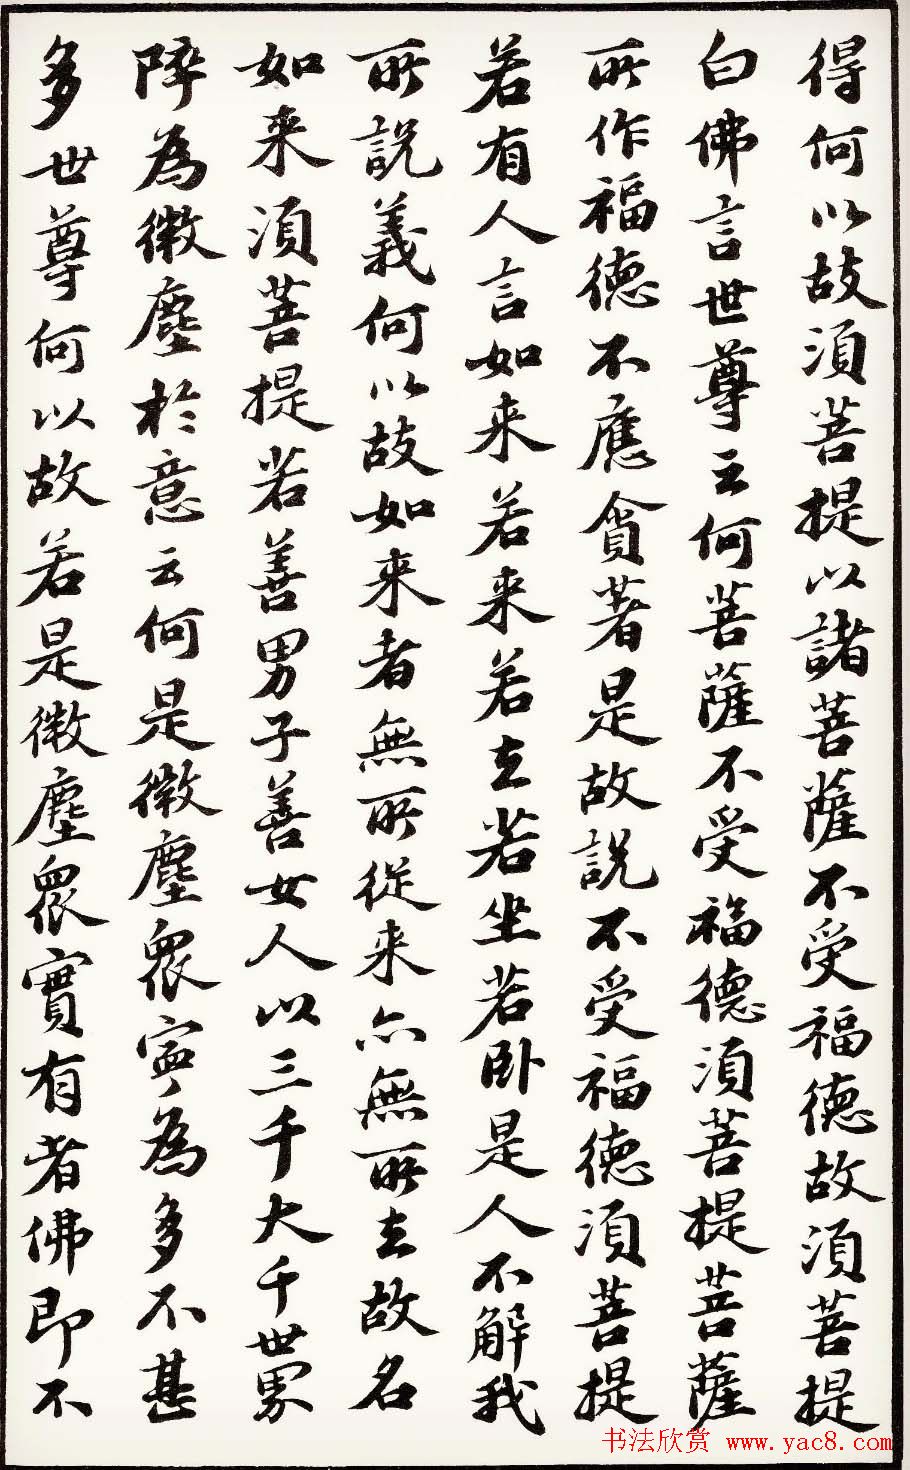 得何以故須菩提以諸菩薩不受福德故須菩提
白佛言世尊云何菩薩不受福德須菩提菩薩
所作福德不應貪著是故説不受福德須菩提
若有人言如来若来若去若坐若卧是人不解我
所説義何以故如来者無所從来亦無所去故名
如来須菩提若善男子善女人以三千大千世界
碎為微塵於意云何是微塵眾寧為多不甚
多世尊何以故若是微塵眾實有者佛即不
书法欣赏 www.yac8.com